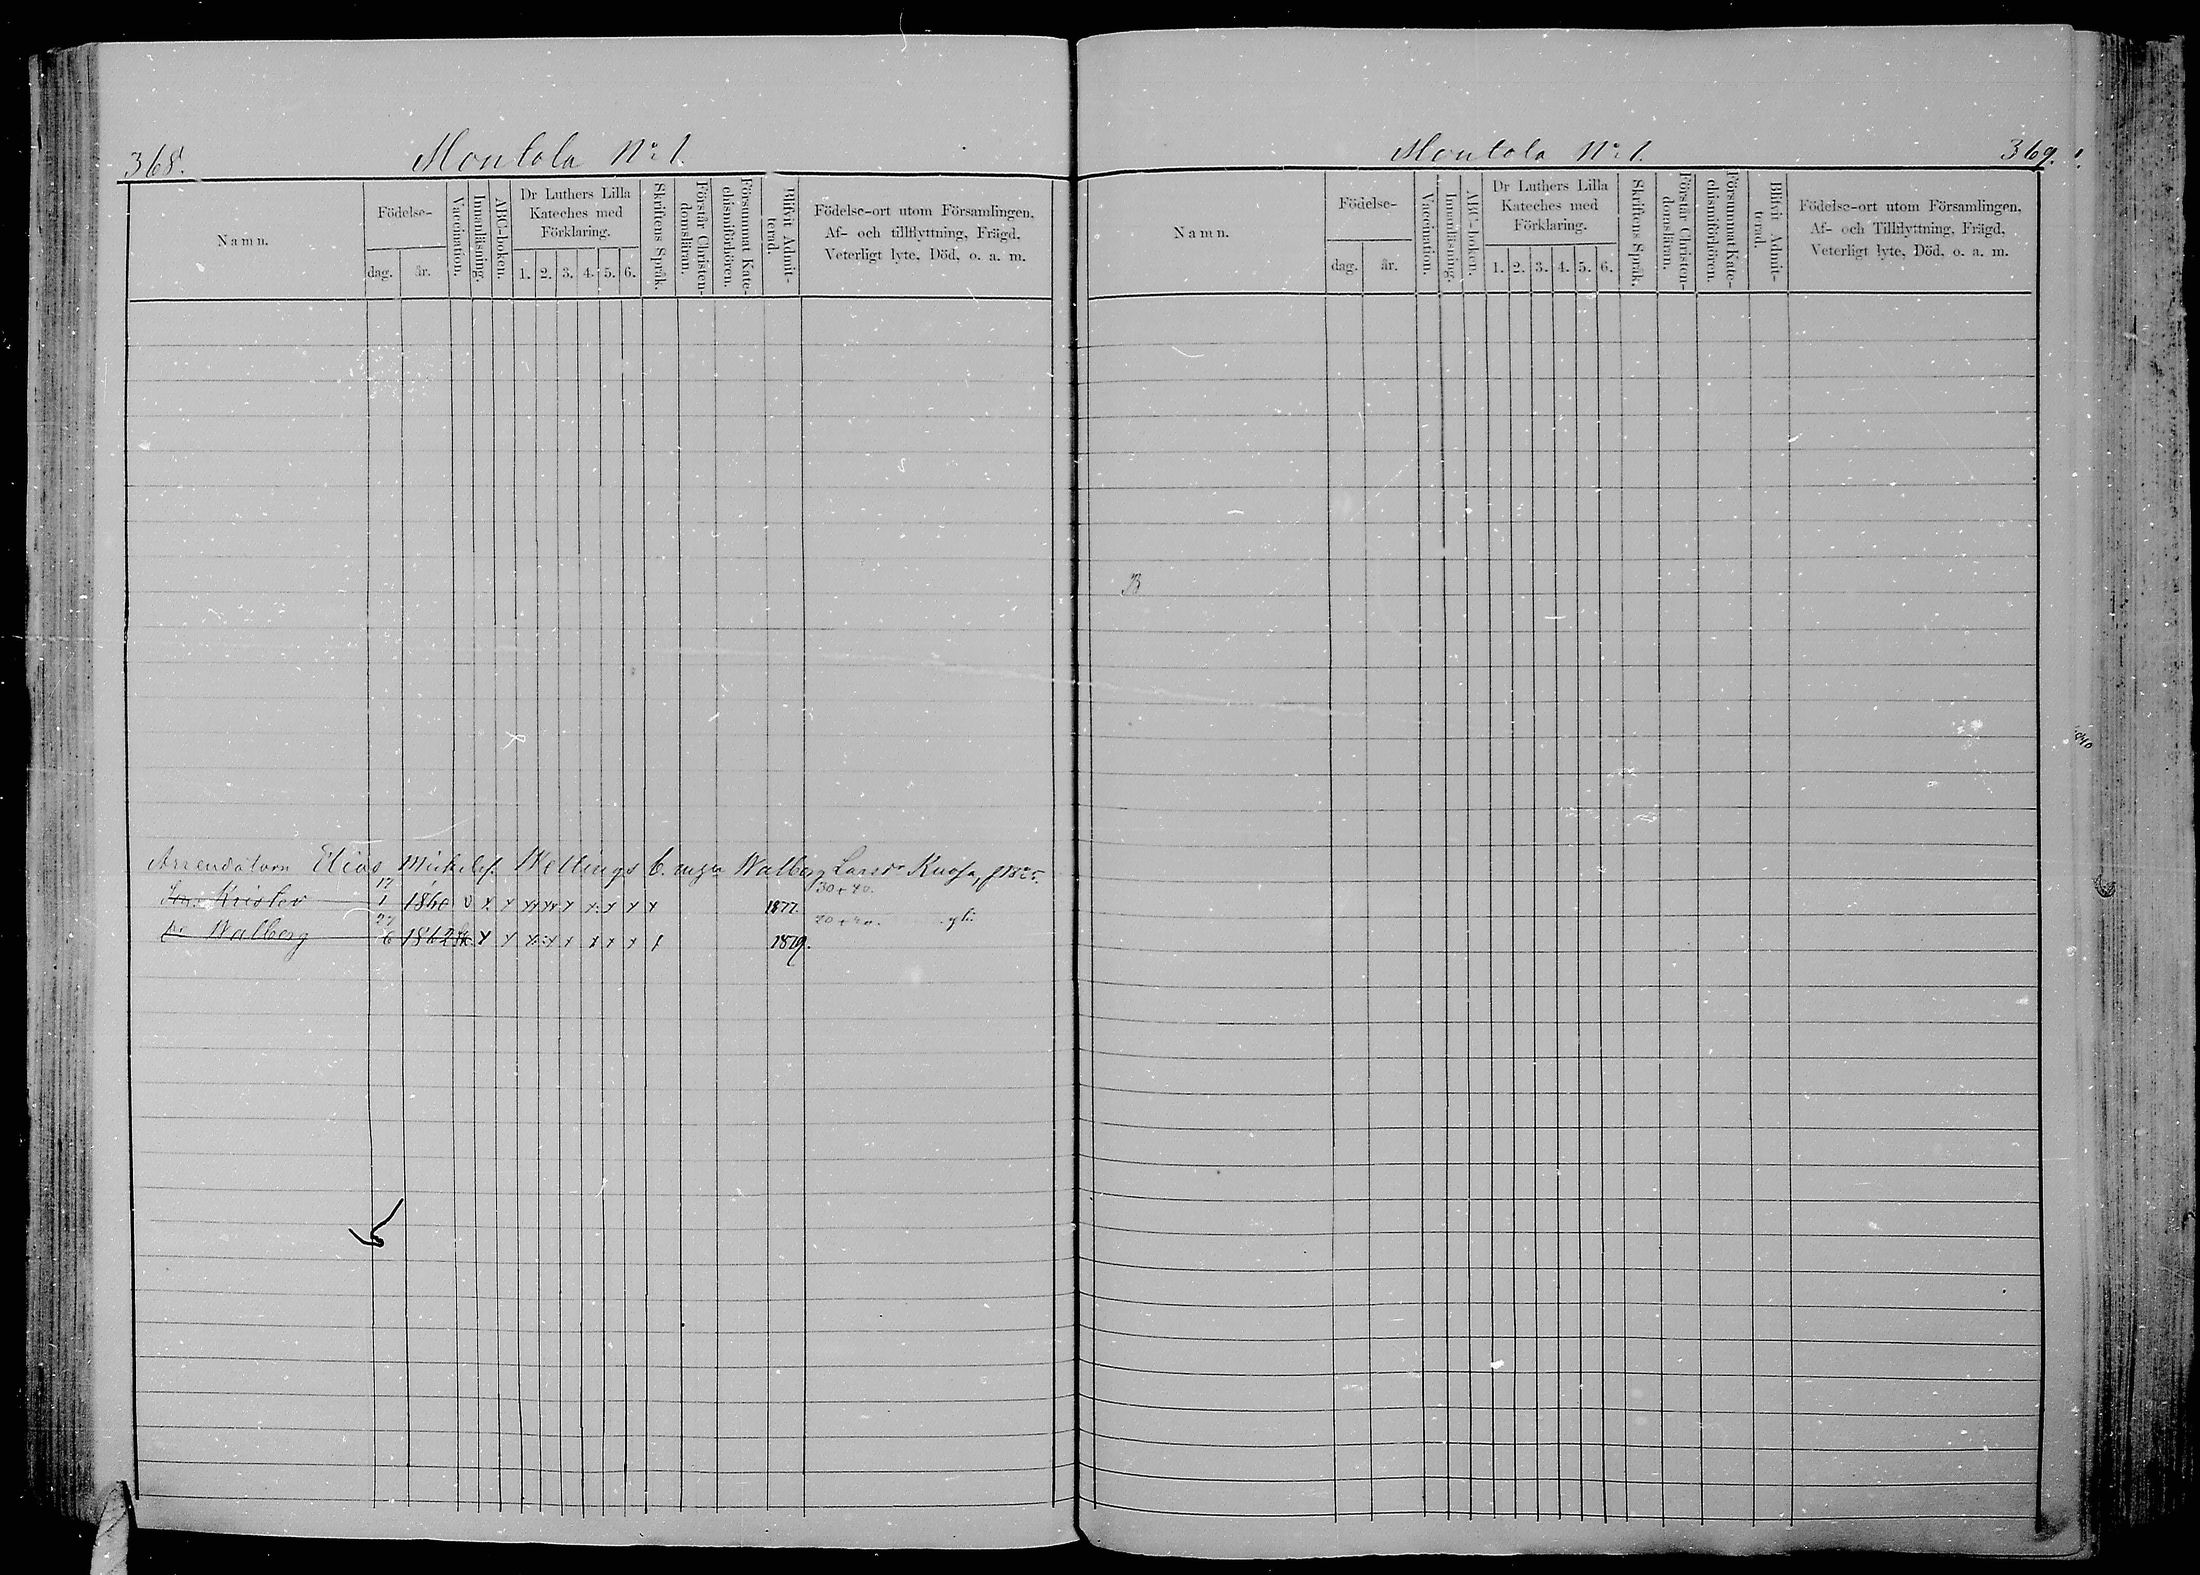 368.
Montola No 1.
Namn.
Födelse-
dag.
år.
Vaccination.
Innanläsning.
ABC-boken.
Dr Luthers Lilla
Kateches med
Förklaring.
1. 2. 3. 4. 5. 6.
Skriftens Språk.
Förstår Christen-
domsläran.
Försummat Kate-
chismiförhören.
Blifvit Admit-
terad.
Födelse-ort utom Församlingen,
Af- och tillflyttning, Frägd,
Veterligt lyte, Död, o. a. m.
Arrendatorn Elias Mickelss. Wallberg Larsdr
30 + 40.
Krister 17/1 1860 v x x x x x x x x x x 1877
Walberg 27/6 1862 x x x x x x x x x 1879.
Montola No 1.
369.
Namn.
Födelse-
dag.
år.
Vaccination.
Innanläsning.
ABC-boken.
Dr Luthers Lilla
Kateches med
Förklaring.
1. 2. 3. 4. 5. 6.
Skriftens Språk.
Förstår Christen-
domsläran.
Försummat Kate-
chismiförhören.
Blifvit Admit-
terad.
Födelse-ort utom Församlingen,
Af- och Tillflyttning, Frägd,
Veterligt lyte, Död, o. a. m.